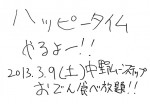 ハッピータイム
やるよー!!
2013.3.9(土)中野ムーンステップ
おでん食べ放題!!